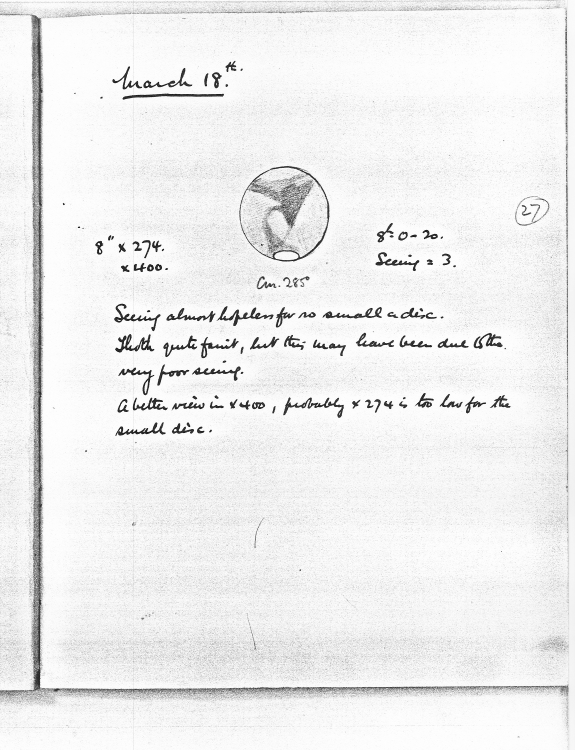 March 18th.
27
8" x 274.
x 400.
8h 0-20.
Seeing = 3.
Cm. 285°
Seeing almost hopeless for so small a disc.
Thoth quite faint, but this may have been due to the
very poor seeing.
A better view in x 400, probably x 274 is too low for the
small disc.